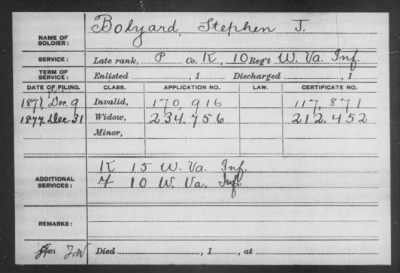 NAME OF SOLDIER: Bolyard, Stephen J.
SERVICE: Late rank, P Co. K, 10 Reg't W. Va. Inf.
TERM OF SERVICE: Enlisted , 1 Discharged , 1
DATE OF FILING. CLASS. APPLICATION NO. LAW. CERTIFICATE NO.
1871 Dec. 9 Invalid, 170,916 117,871
1877 Dec 31 Widow, 234,756 212,452
Minor,
ADDITIONAL SERVICES: K 15 W. Va. Inf.
10 W. Va. Inf
REMARKS:
Died , 1 , at